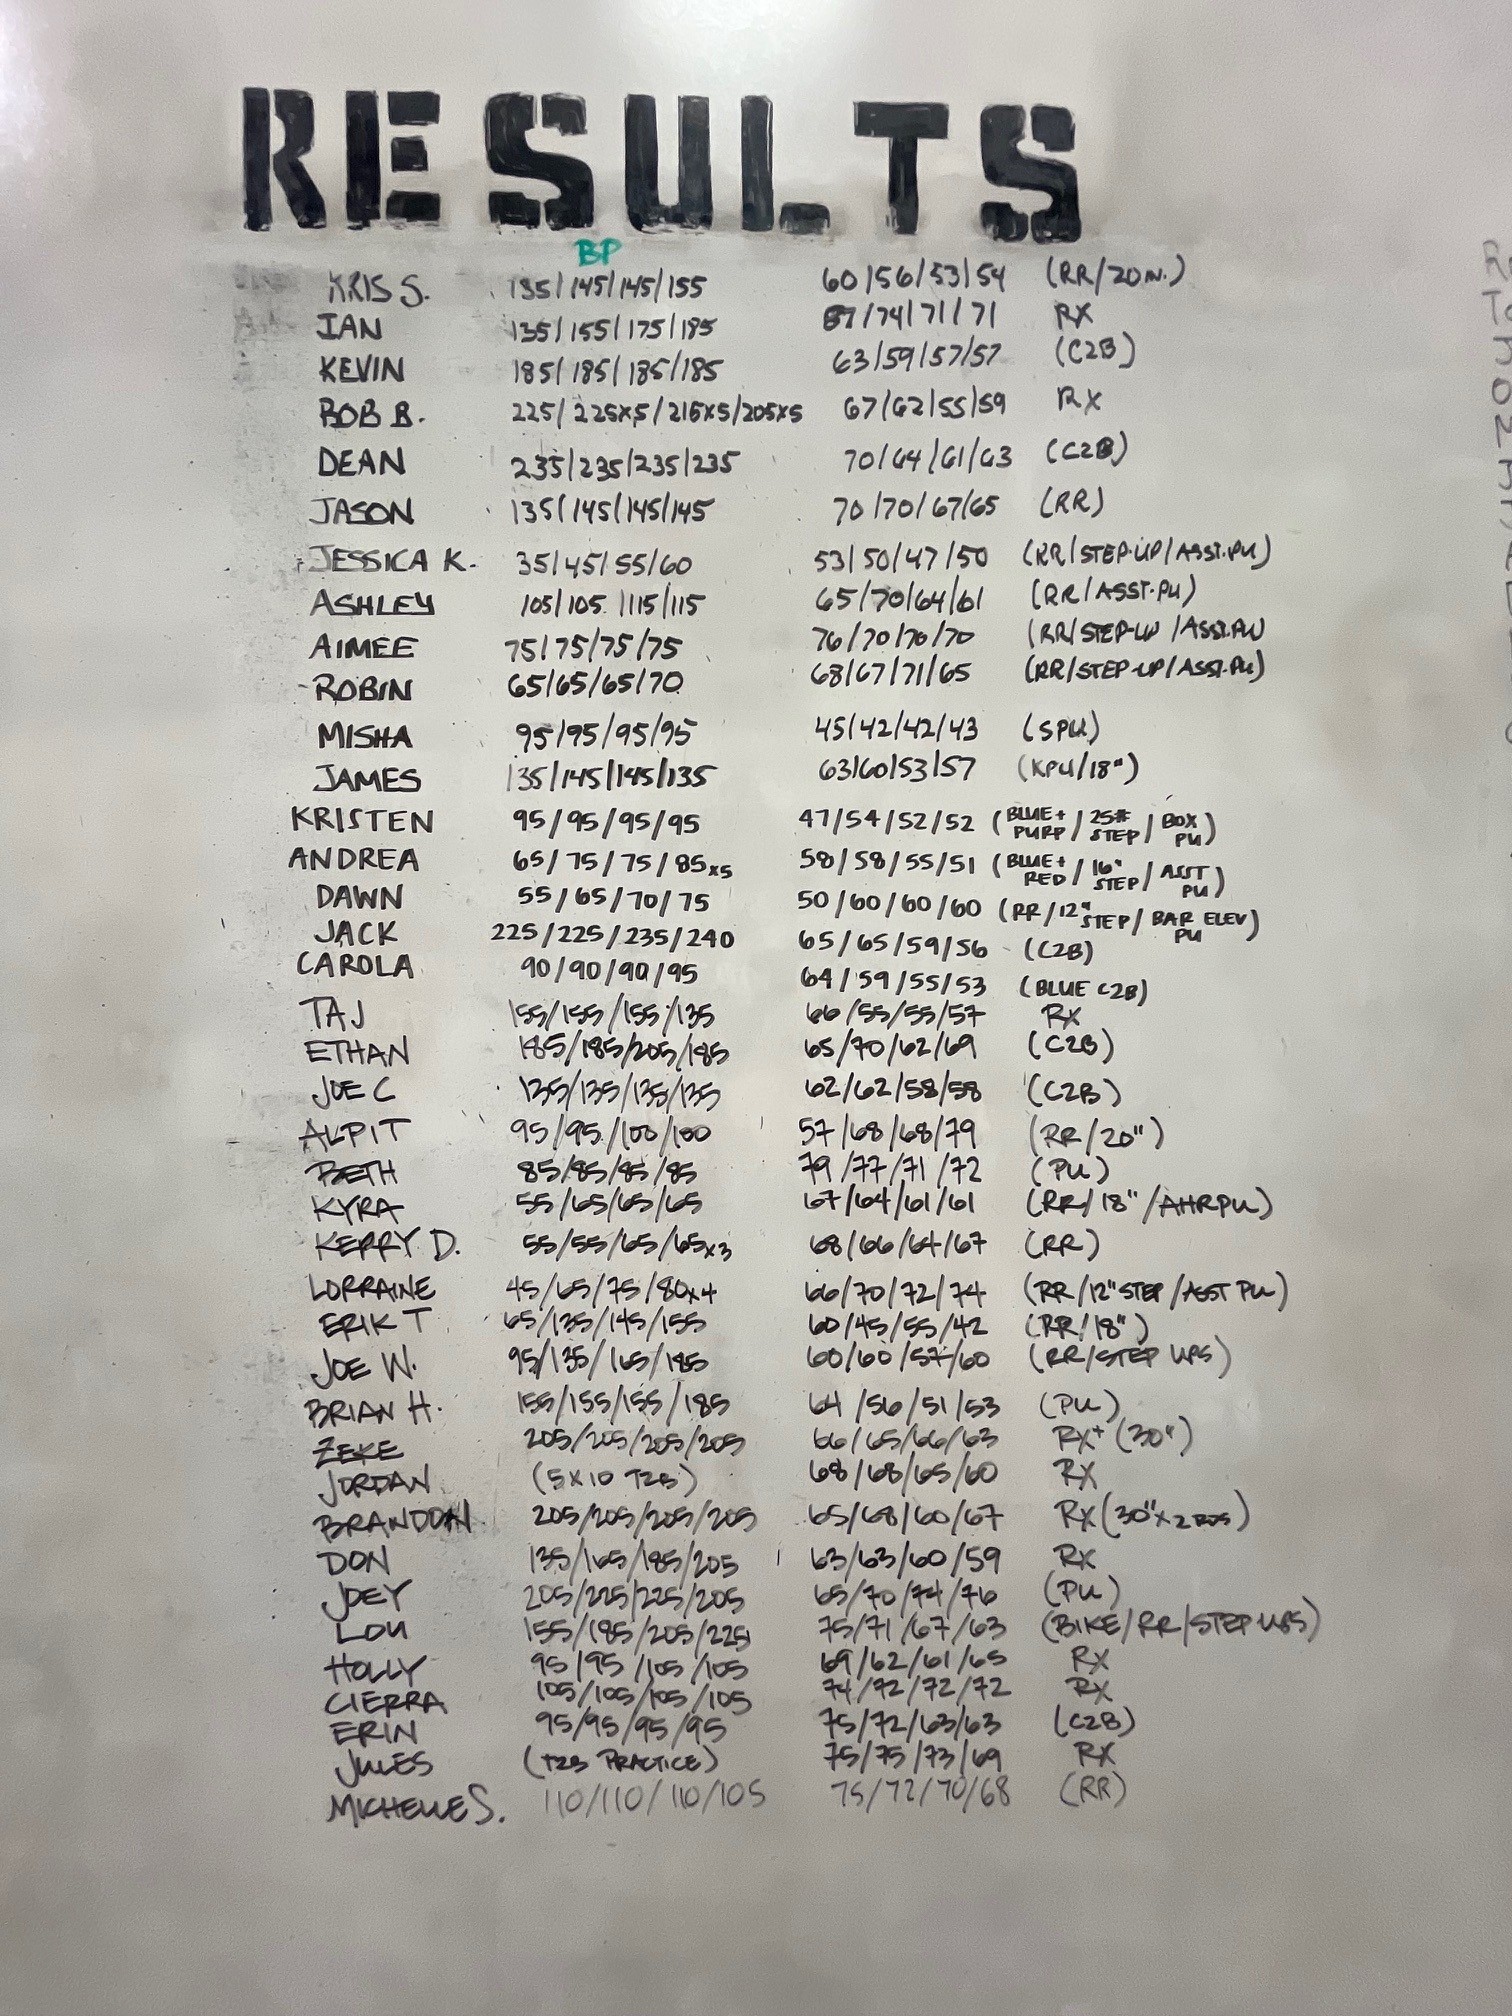 RESULTS
BP
KRIS S. 135/145/145/155 60/56/53/54 (RR/20IN.)
IAN 135/155/175/185 /74/71/71 RX
KEVIN 185/185/185/185 63/59/57/57 (C2B)
BOB B. 225/225x5/215x5/205x5 67/62/55/59 RX
DEAN 235/235/235/235 70/64/61/63 (C2B)
JASON 135/145/145/145 70/70/67/65 (RR)
JESSICA K. 35/45/55/60 53/50/47/50 (RR/STEP-UP/ASST.PU)
ASHLEY 105/105/115/115 65/70/64/61 (RR/ASST.PU)
AIMEE 75/75/75/75 76/70/70/70 (RR/STEP-UP/ASST.PU)
ROBIN 65/65/65/70 68/67/71/65 (RR/STEP-UP/ASST.PU)
MISHA 95/95/95/95 45/42/42/43 (SPU)
JAMES 135/145/145/135 63/60/53/57 (KPU/18")
KRISTEN 95/95/95/95 47/54/52/52 (BLUE+ PURP/25# STEP/BOX PU)
ANDREA 65/75/75/85x5 58/58/55/51 (BLUE+ RED/16" STEP/ASST PU)
DAWN 55/65/70/75 50/60/60/60 (RR/12" STEP/BAR ELEV PU)
JACK 225/225/235/240 65/65/59/56 (C2B)
CAROLA 90/90/90/95 64/59/55/53 (BLUE C2B)
TAJ 155/155/155/135 66/55/55/57 RX
ETHAN 185/185/205/185 65/70/62/69 (C2B)
JOE C 135/135/135/135 62/62/58/58 (C2B)
ALPIT 95/95/100/100 57/68/68/79 (RR/20")
BETH 85/85/85/85 79/77/71/72 (PU)
KYRA 55/65/65/65 67/64/61/61 (RR/18"/AHRPU)
KERRY D. 55/55/65/65x3 68/66/64/67 (RR)
LORRAINE 45/65/75/80x4 66/70/72/74 (RR/12" STEP/ASST PU)
ERIK T 65/135/145/155 60/45/55/42 (RR/18")
JOE W. 95/135/165/185 60/60/57/60 (RR/STEP UPS)
BRIAN H. 155/155/155/185 64/56/51/53 (PU)
ZEKE 205/205/205/205 66/65/66/63 RX+ (30")
JORDAN (5X10 T2B) 68/68/65/60 RX
BRANDON 205/205/205/205 65/68/60/67 RX (30"x2 RDS)
DON 135/165/185/205 63/63/60/59 RX
JOEY 205/225/225/205 65/70/74/76 (PU)
LOU 155/185/205/225 75/71/67/63 (BIKE/RR/STEP UPS)
HOLLY 95/95/105/105 69/62/61/65 RX
CIERRA 105/105/105/105 74/72/72/72 RX
ERIN 95/95/95/95 75/72/63/63 (C2B)
JULES (T2B PRACTICE) 75/75/73/69 RX
MICHELLE S. 110/110/110/105 75/72/70/68 (RR)